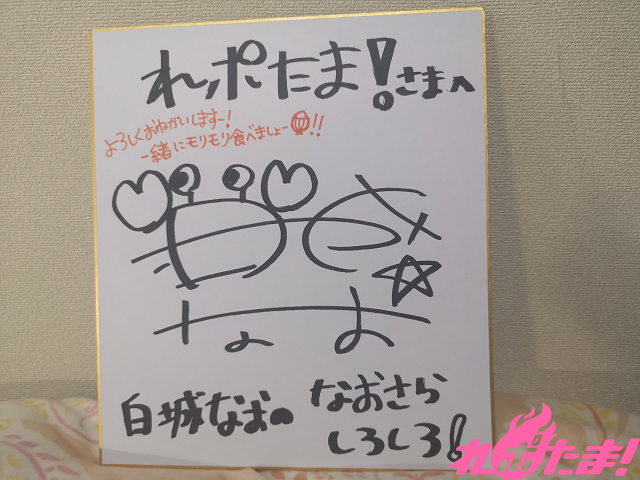 れポたま!さまへ
よろしくおねがいしますー!
一緒にモリモリ食べましょー!!
なお
白城なおの
なおさら
しろしろ!
れポたま!